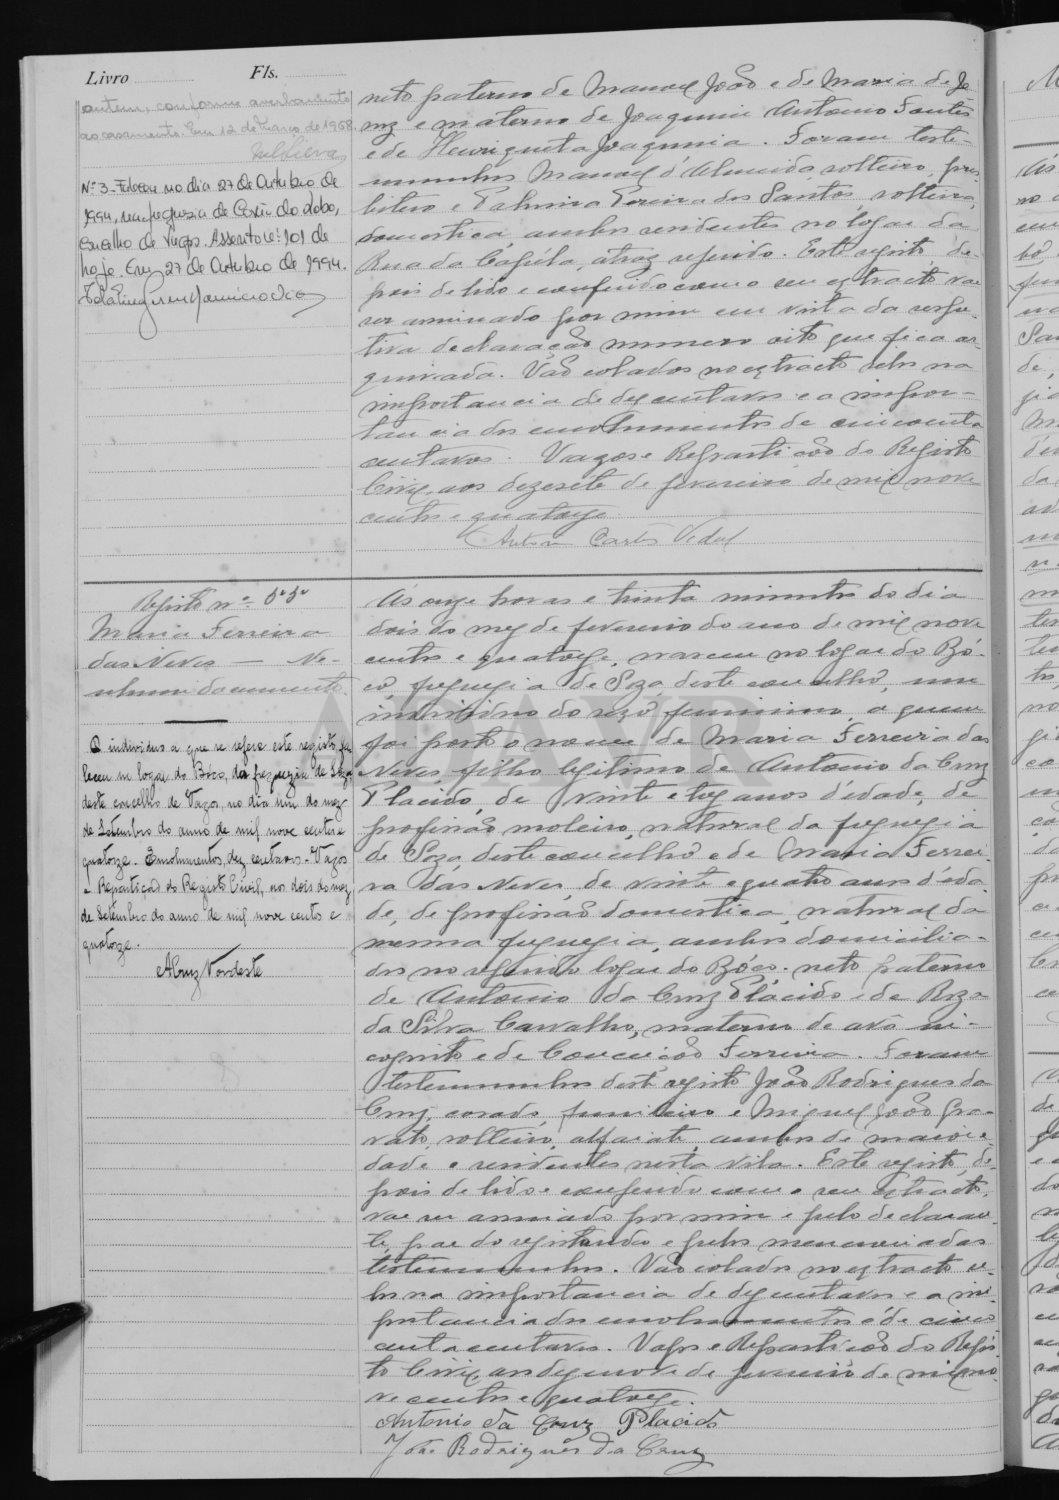 Livro Fls.
ontem, conforme averbamento
ao casamento. Em 12 de Março de 1968
Nº 3 - Faleceu no dia 27 de Outubro de
1994, na freguesia de Covão do Lobo,
concelho de Vagos. Assento nº 101 de
hoje. Em, 27 de Outubro de 1994.
neto paterno de Manoel João e de Maria de Je
nz e materno de Joaquim Antonio Fontes
e de Henriqueta Joaquina. Foram teste-
munhas Manoel d'Almeida solteiro, pres
bitero e Palmira Pereira dos Santos, solteira,
domestica, ambos residentes no logar da
Rua da Capéla, atraz referido. Este registo, de-
pois de lido e conferido com o seu extracto vae
ser assinado por mim em vista da respe-
tiva declaração numero oito que fica ar-
quivada. Vão colados no extracto selos na
importancia de dez centavos e a impor-
tancia dos emolumentos de cincoenta
centavos. Vagos e Repartição do Registo
Civil, aos dezesete de fevereiro de mil nove
centos e quatorze
Antonio Carlos Vidal
Registo nº
Maria Ferreira
das Neves — Ne-
nhum documento
O individuo a que se refere este registo, fa
leceu no logar do Bóco, da freguezia de Soza
deste concelho de Vagos, no dia um do mez
de Setembro do anno de mil nove centos e
quatorze. Emolumentos, dez centavos. Vagos
e Repartição do Registo Civil, aos dois do mez
de Setembro do anno de mil nove centos e
quatorze.
Ás onze horas e trinta minutos do dia
dois do mez de fevereiro do ano de mil nove
centos e quatorze, nasceu no logar do Bó-
co, freguezia de Soza, deste concelho, um
individuo do sexo feminino, a quem
foi posto o nome de Maria Ferreira das
Neves, filho legitimo de Antonio da Cruz
Placido, de vinte e trez anos d'edade, de
profissão moleiro, natural da freguezia
de Soza, deste concelho e de Maria Ferrei-
ra das Neves, de vinte e quatro anos d'eda-
de, de profissão domestica, natural da
mesma freguezia, ambos domicilia-
dos no referido logar do Bóco. neto paterno
de Antonio da Cruz Plácido e de Roza
da Silva Carvalho, materno de avô in-
cognito e de Conceição Ferreira. Foram
testemunhas deste registo João Rodrigues da
Cruz, casado, funileiro e Miguel João Gra-
vato, solteiro, alfaiate, ambos de maior e
dade e residentes nesta vila. Este registo, de-
pois de lido e conferido com o seu extracto,
vae ser assinado por mim e pelo declaran-
te, pae do registando e pelas mencionadas
testemunhas. Vão colados no extracto se-
los na importancia de dez centavos e a im-
portancia dos emolumentos é de cinco
enta centavos. Vagos e Repartição do Regis-
to Civil, aos dezenove de fevereiro de mil no-
ve centos e quatorze.
Antonio da Cruz Placido
João Rodrigues da Cruz
ADAVR